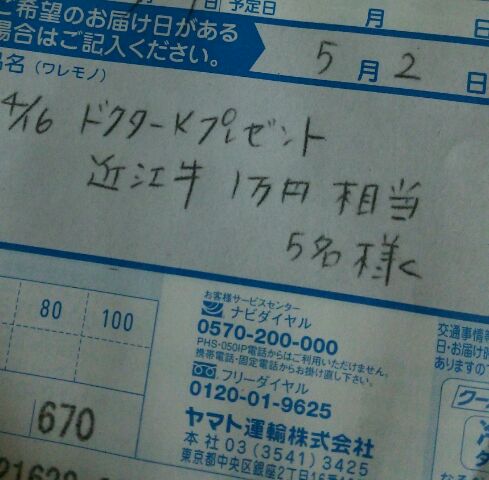 ご希望のお届け日がある
場合はご記入ください。
予定日
月 日
5月2日
品名（ワレモノ）
4/16 ドクターKプレゼント
近江牛 1万円 相当
5名様く
80 100
670
お客様サービスセンター
ナビダイヤル
0570-200-000
PHS・050IP電話からはご利用いただけません。
携帯電話・固定電話からお掛け直し下さい。
フリーダイヤル
0120-01-9625
ヤマト運輸株式会社
本社 03（3541）3425
東京都中央区銀座2丁目16
交通事情等
日・お届け時
ありますので
クー
なる